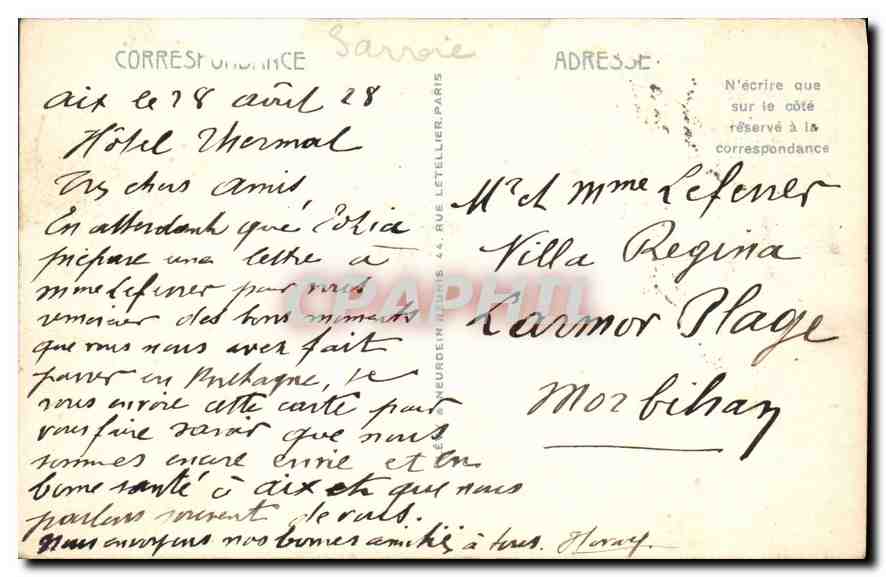 Savoie
CORRESPONDANCE
ADRESSE
N'écrire que
sur le côté
réservé à la
correspondance
Aix le 28 août 28
Hôtel Thermal
Très chers amis
En attendant que
prépare une lettre à
Mme Leferrer pour vous
remercier des bons moments
que vous nous avez fait
passer en Bretagne, je
vous envoie cette carte pour
vous faire savoir que nous
sommes encore en vie et en
bonne santé à Aix et que nous
parlons souvent de vous.
Nous envoyons nos bonnes amitiés à tous.
NEURDEIN RÉUNIS 44, RUE LETELLIER, PARIS
Mr et Mme Leferrer
Villa Regina
Larmor Plage
Morbihan
CPAPHIL